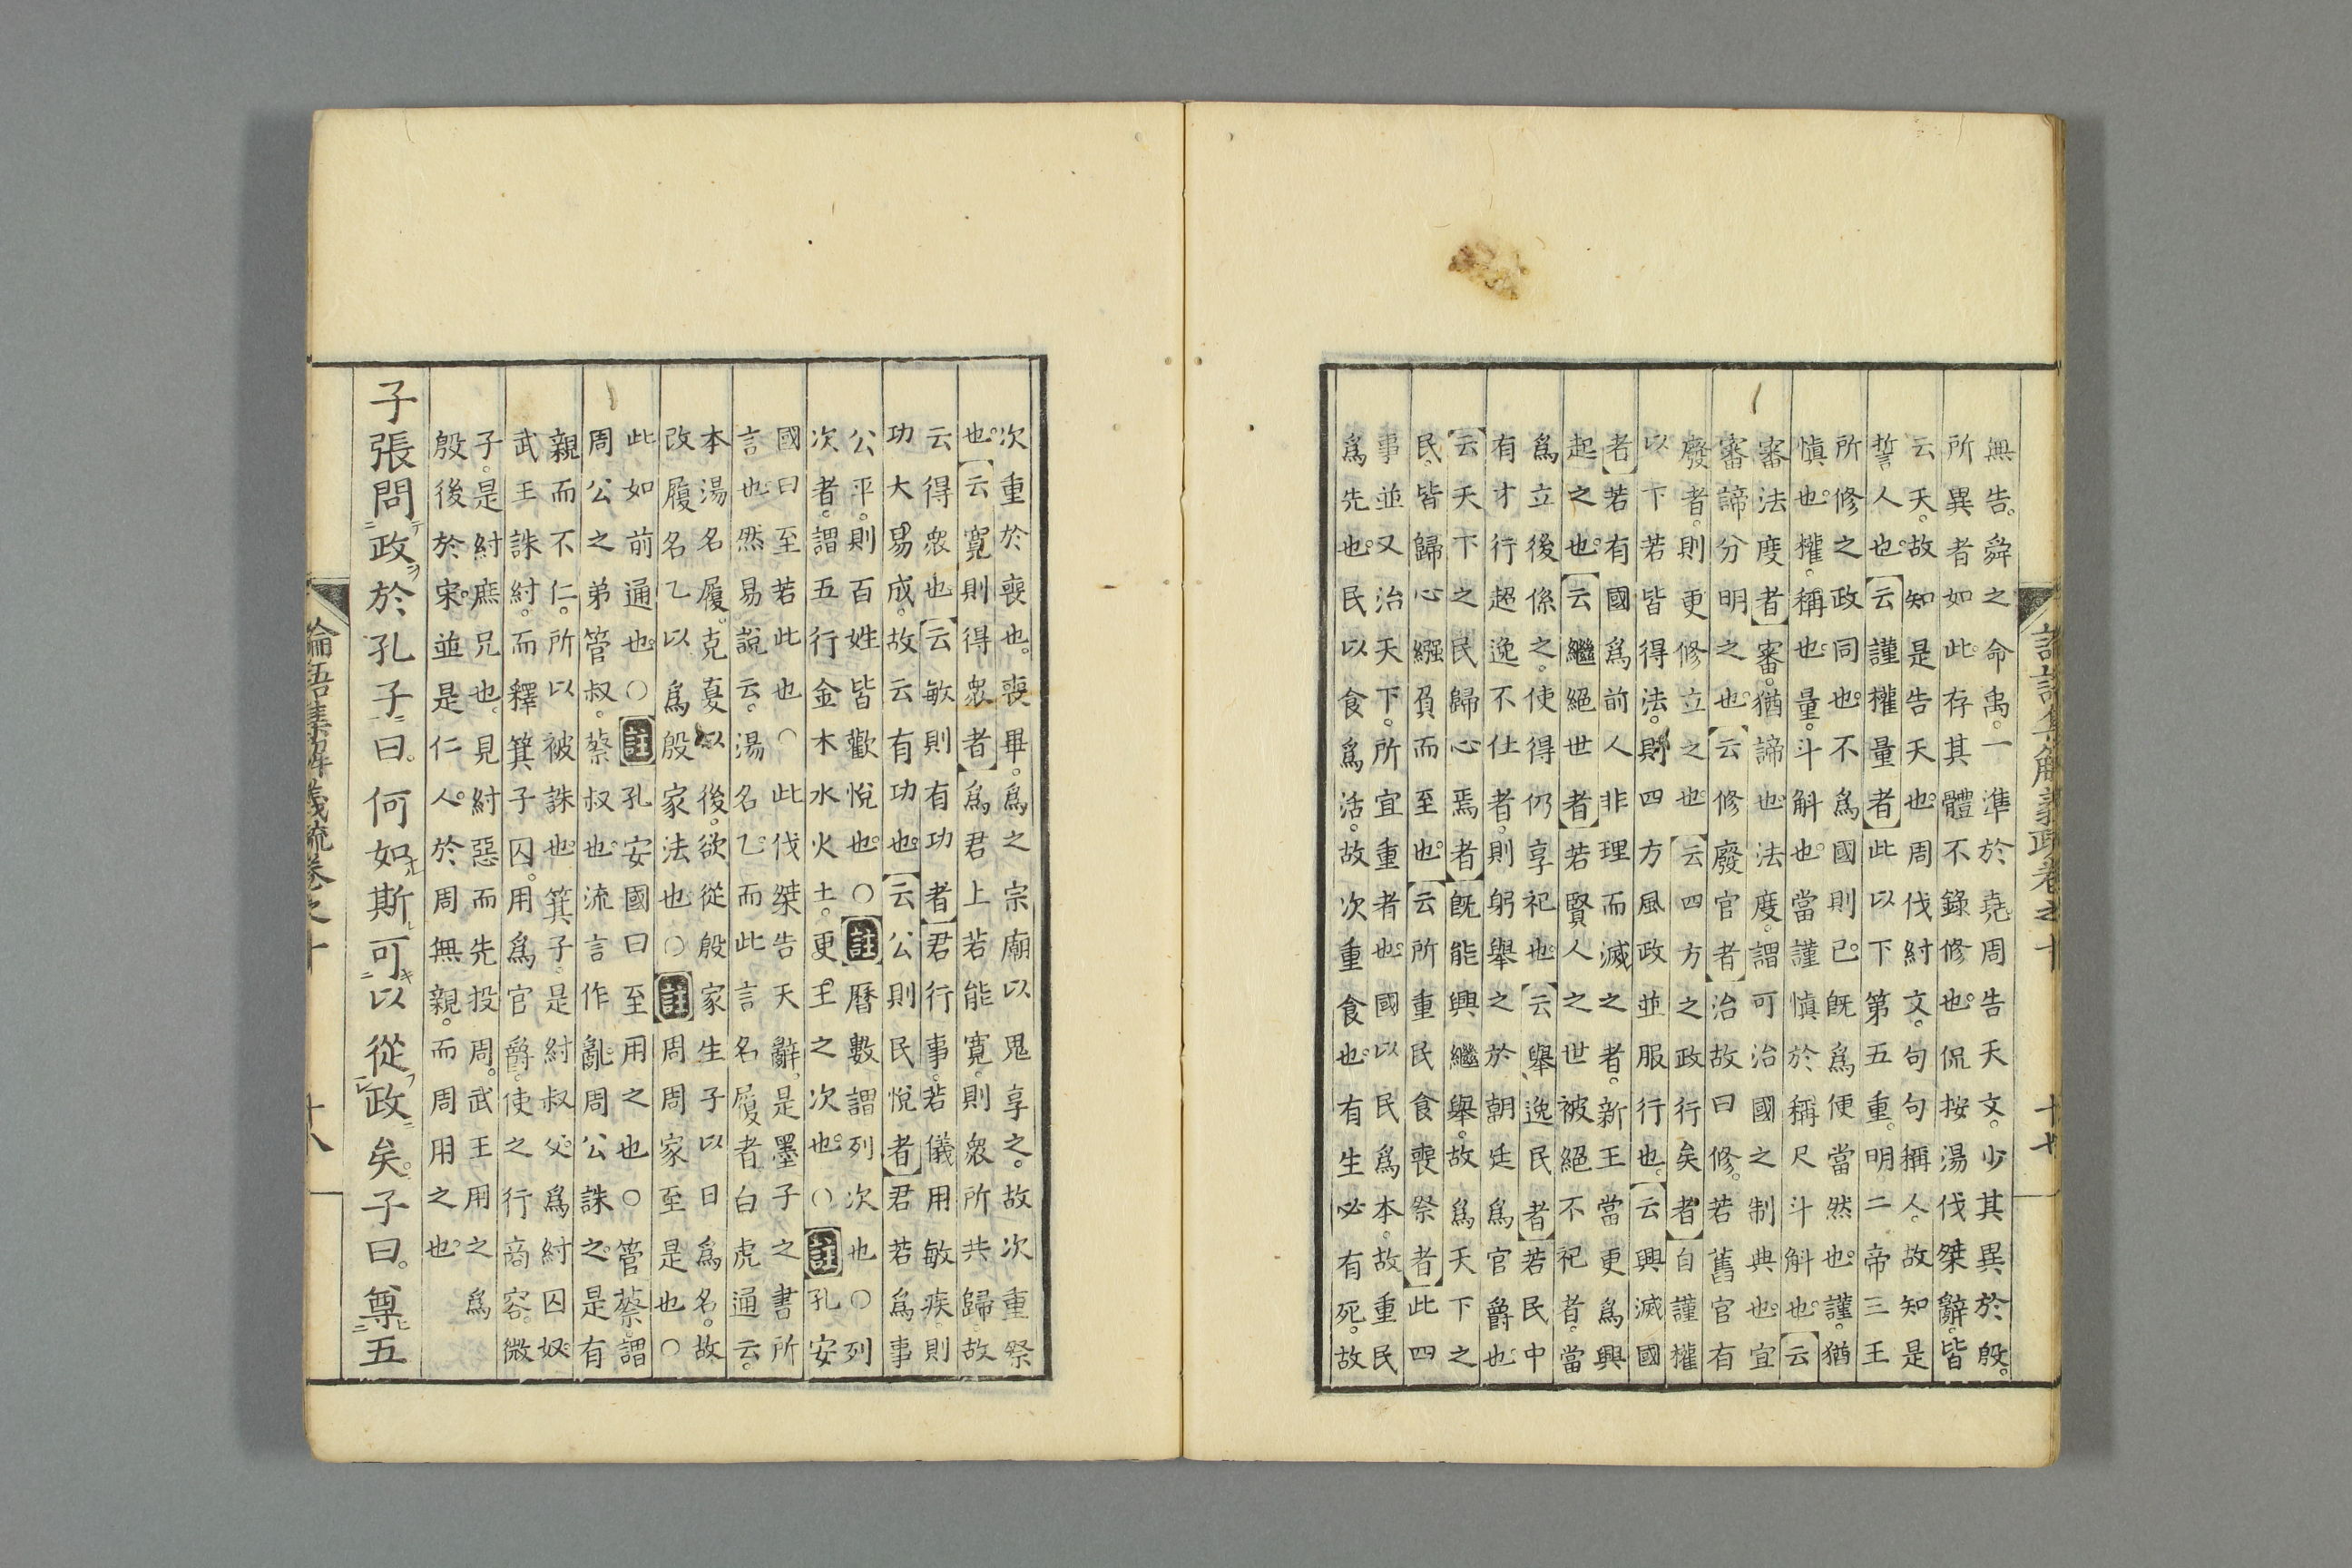 無告。舜之命禹。一準於堯。周告天文。少其異於殷。
所異者如此。存其體不錄修也。侃按湯伐桀辭。皆
云天。故知是告天也。周伐紂文。句句稱人。故知是
誓人也。云謹權量者此以下第五重。明二帝三王
所修之政同也。不爲國則已。既爲便當然也。謹。猶
愼也。權。稱也。量。斗斛也。當謹愼於稱尺斗斛也。云
審法度者審。猶諦也。法度。謂可治國之制典也。宜
審諦分明之也。云修廢官者治故曰修。若舊官有
廢者。則更修立之也。云四方之政行矣者自謹權
以下若皆得法。則四方風政並服行也。云興滅國
者若有國爲前人非理而滅之者。新王當更爲興
起之也。云繼絕世者若賢人之世被絕不祀者。當
爲立後係之。使得仍享祀也。云舉逸民者若民中
有才行超逸不仕者。則躬舉之於朝廷爲官爵也。
云天下之民歸心焉者既能興繼舉。故爲天下之
民。皆歸心繦負而至也。云所重民食喪祭者此四
事並又治天下。所宜重者也。國以民爲本。故重民
爲先也。民以食爲活。故次重食也。有生必有死。故
論語集解義疏卷之十 十七
次重於喪也。喪畢。爲之宗廟以鬼享之。故次重祭
也。云寬則得衆者爲君上若能寬。則衆所共歸。故
云得衆也云敏則有功者君行事。若儀用敏疾。則
功大易成。故云有功也。云公則民悅者君若爲事
公平。則百姓皆歡悅也。○註曆數謂列次也○列
次者。謂五行金木水火土。更王之次也。○註孔安
國曰至若此也○此伐桀告天辭。是墨子之書所
言也。然易說云。湯名乙。而此言名履者白虎通云。
本湯名履。克夏以後。欲從殷家生子以日爲名。故
改履名乙以爲殷家法也○註周周家至是也○
此如前通也。○註孔安國曰至用之也○管蔡。謂
周公之弟管叔。蔡叔也。流言作亂。周公誅之。是有
親而不仁。所以被誅也。箕子。是紂叔父。爲紂囚奴。
武王誅紂。而釋箕子囚。用爲官爵。使之行商容。微
子。是紂庶兄也。見紂惡而先投周。武王用之爲
殷後於宋。並是仁人。於周無親。而周用之也。
子張問政於孔子曰。何如斯可以從政矣。子曰。尊五
論語集解義疏卷之十 十八